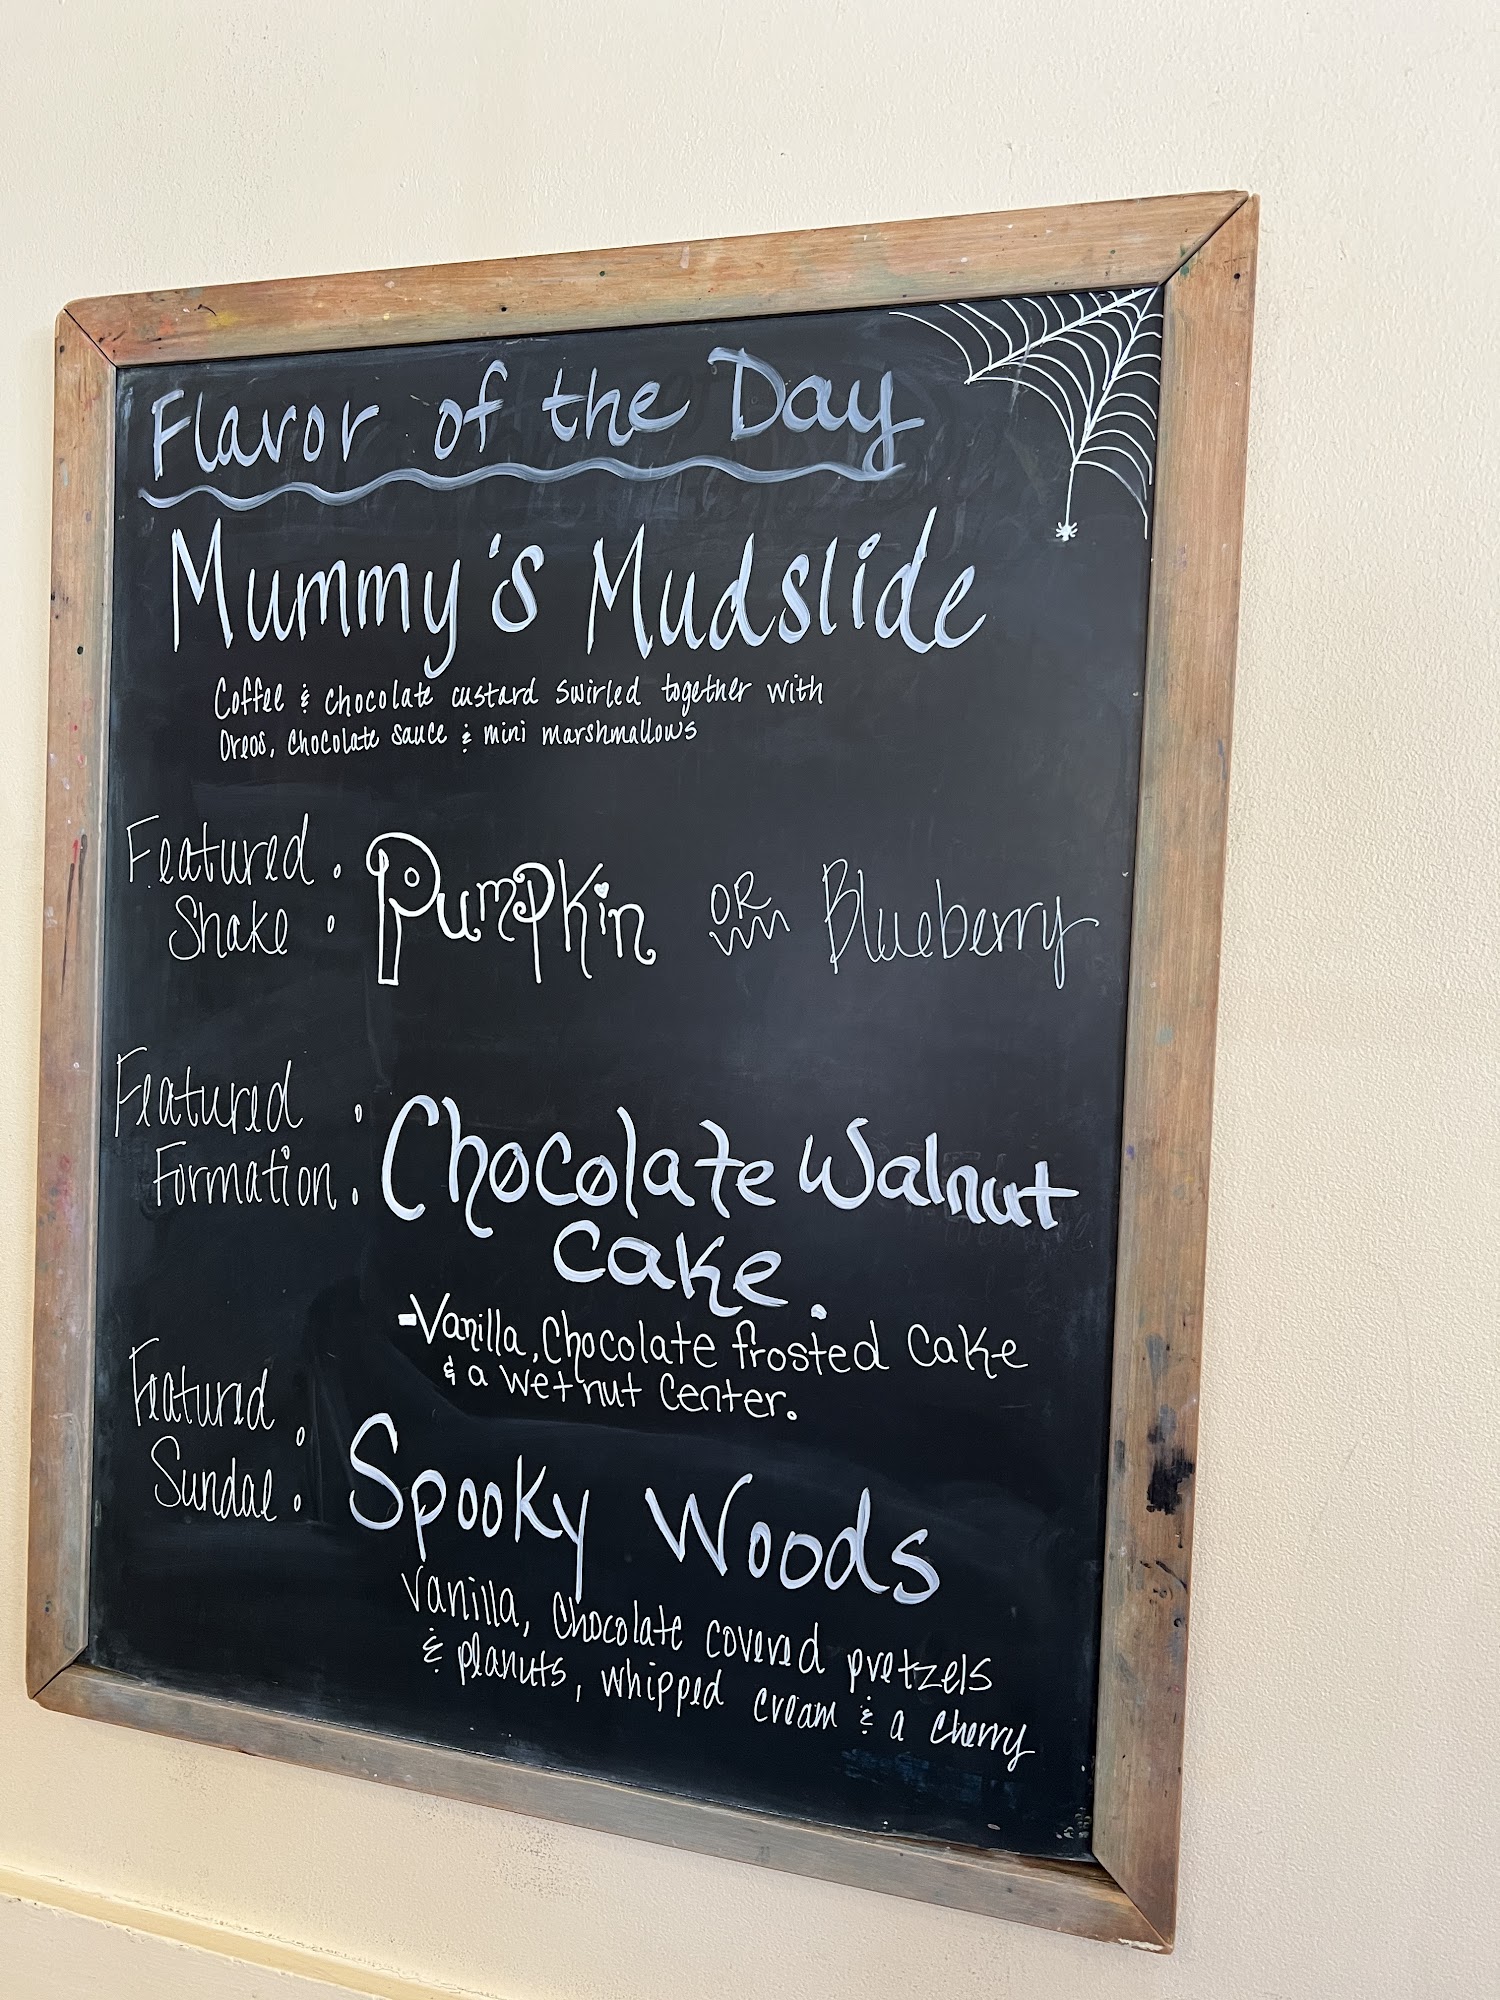 Flavor of the Day
Mummy's Mudslide
Coffee & chocolate custard swirled together with
Oreos, chocolate sauce & mini marshmallows
Featured
Shake :
Pumpkin OR Blueberry
Featured
Formation :
Chocolate Walnut
Cake.
-Vanilla, Chocolate frosted Cake
& a wet nut Center.
Featured
Sundae :
Spooky Woods
Vanilla, Chocolate covered pretzels
& peanuts, whipped cream & a cherry